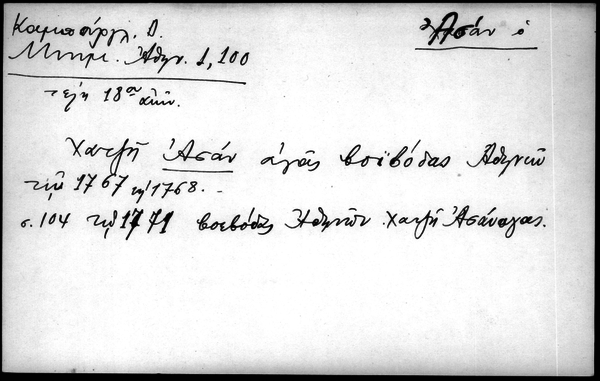 Καμπούρογλ. Δ.
Μνημ. Ἀθην. 1, 100
Ἀσάν ὁ
τέλη 18ου αἰών.
Χατζῆ Ἀσάν ἀγᾶς βοϊβόδας Ἀθηνῶν
τῷ 1767 1768.
σ. 104 τῷ 1771 βοεβόδας Ἀθηνῶν Χατζῆ Ἀσάναγας.